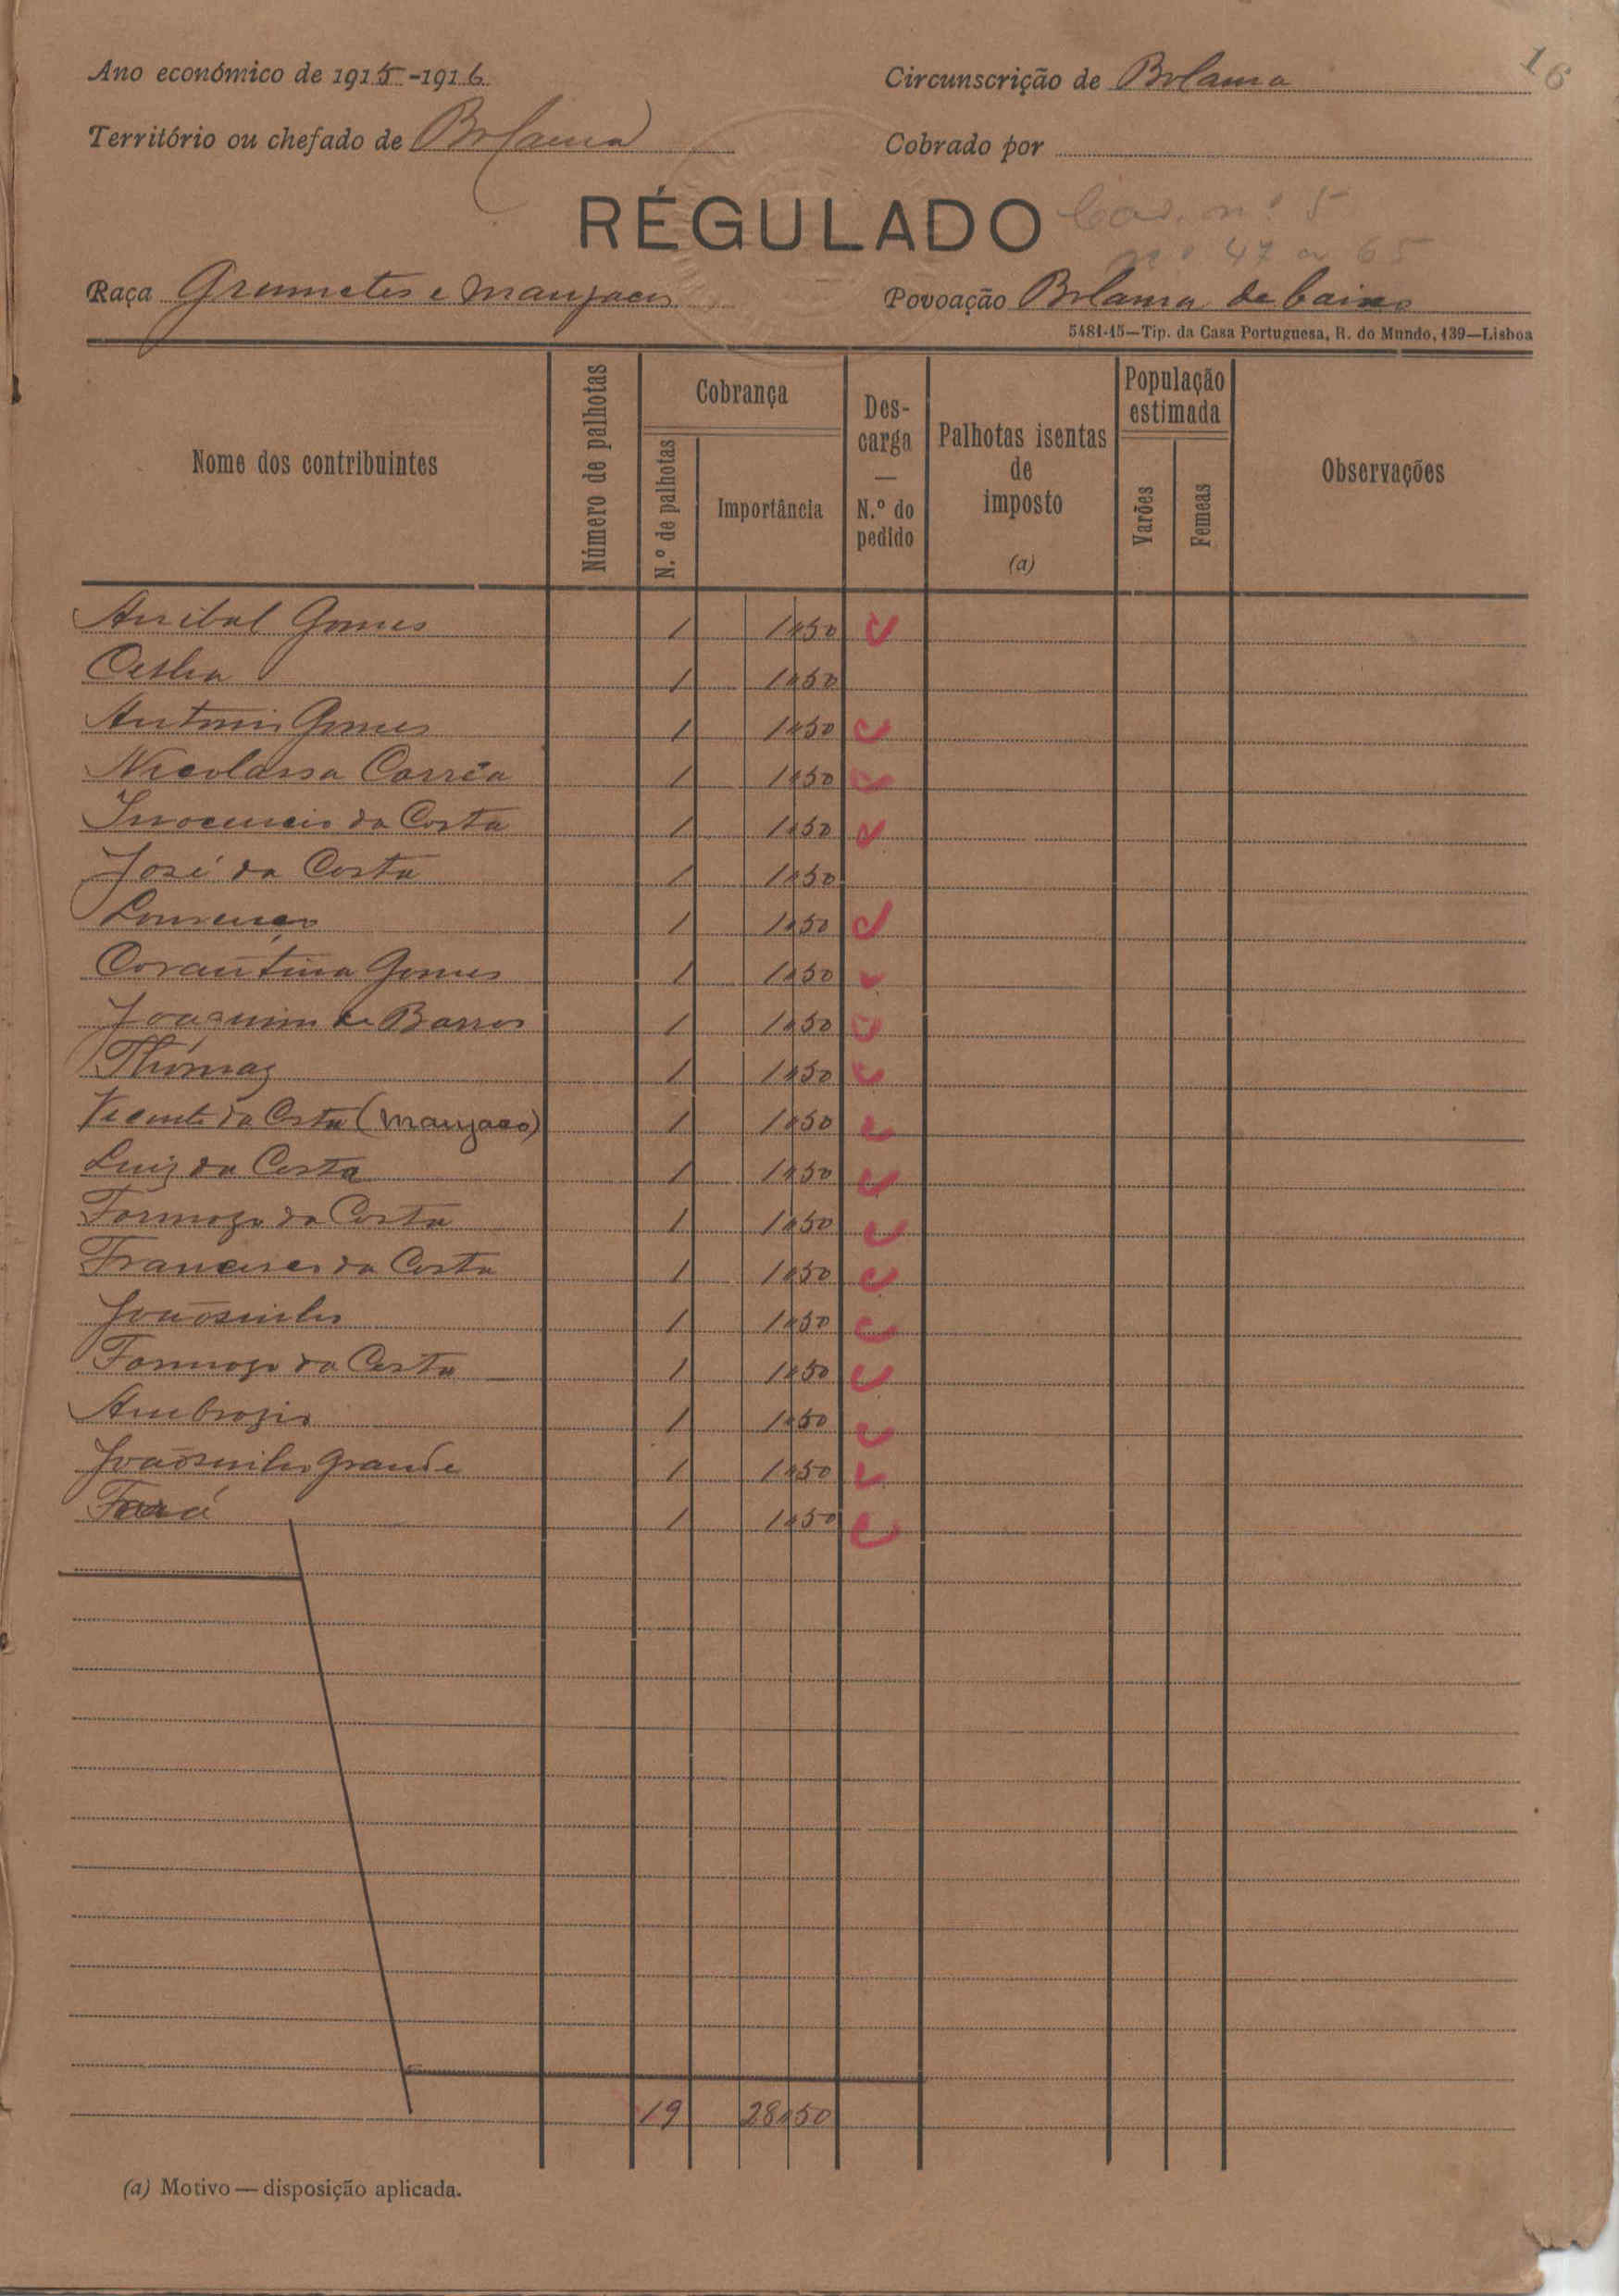 16
Ano económico de 1915-1916 Circunscrição de Bolama
Território ou chefado de Bolama Cobrado por
RÉGULADO
Cad. nº 5
nº 47 a 65
Raça Grumetes e Manjacos Povoação Bolama de baixo
5481-15—Tip. da Casa Portuguesa, R. do Mundo, 139—Lisboa
Nome dos contribuintes
Número de palhotas
Cobrança
N.º de palhotas
Importância
Descarga — N.º do pedido
Palhotas isentas de imposto (a)
População estimada
Varões
Femeas
Observações
Anibal Gomes 1 1$50
1 1$50
Antonio Gomes 1 1$50
Nicolassa Corrêa 1 1$50
Inocencio da Costa 1 1$50
José da Costa 1 1$50
Lourenço 1 1$50
Corantina Gomes 1 1$50
Joaquim de Barros 1 1$50
Thomaz 1 1$50
Vicente da Costa (Manjaco) 1 1$50
Luiz da Costa 1 1$50
Formozo da Costa 1 1$50
Francisco da Costa 1 1$50
Joãosinho 1 1$50
Formozo da Costa 1 1$50
Ambrozio 1 1$50
Joãosinho Grande 1 1$50
1 1$50
19 28$50
(a) Motivo — disposição aplicada.